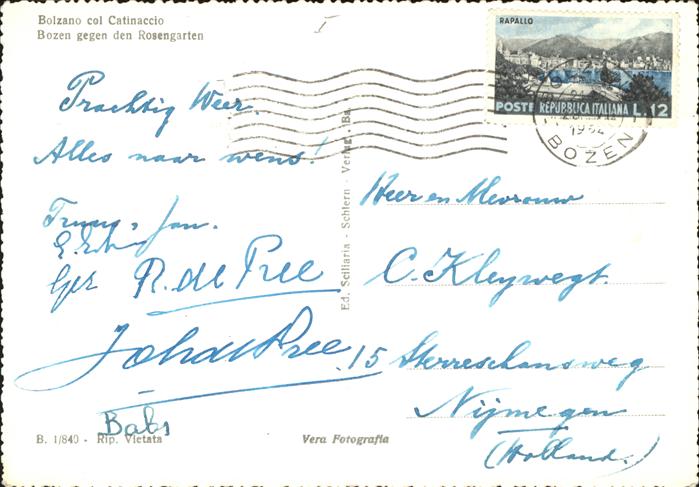 Bolzano col Catinaccio
Bozen gegen den Rosengarten
I
RAPALLO
POSTE REPUBBLICA ITALIANA L.12
BOZEN
Prachtig Weer.
Alles naar wens!
Truus, Jan.
Ger R. de Pree
Joh de Pree
Babs
Ed. Scillaria - Schlern - Verlag - Bz.
Heer en Mevrouw
C. Kleywegt.
15 Sterreschansweg
Nijmegen
(Holland.)
B. 1/840 - Rip. Vietata
Vera Fotografia